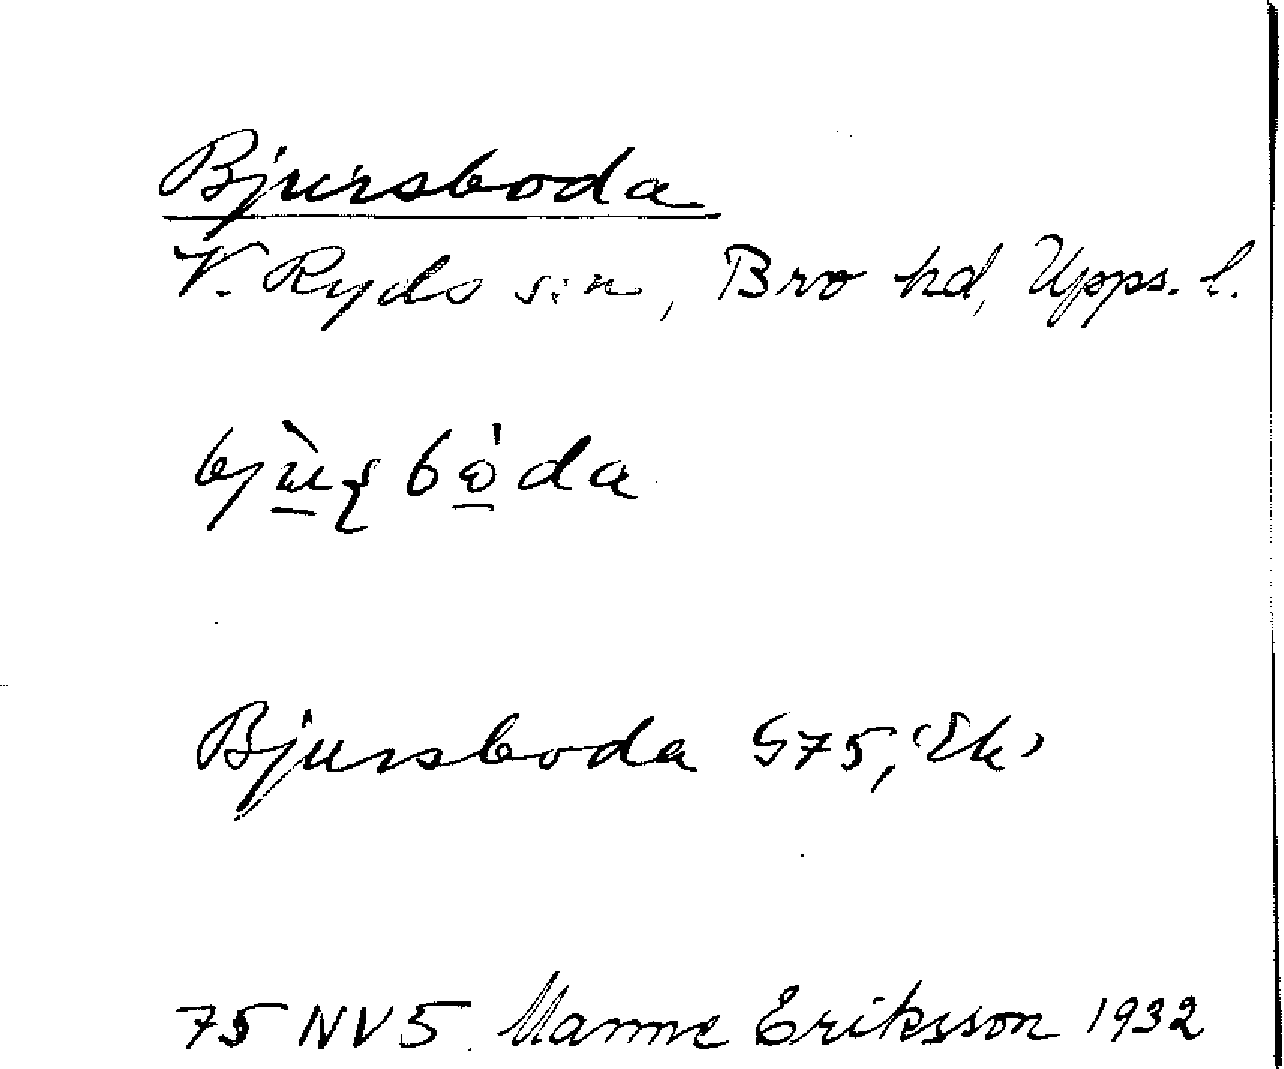 Bjursboda
V. Ryds s:n, Bro hd, Upps. l.
Bjursboda G75, Ek
75 NV 5. Manne Eriksson 1932